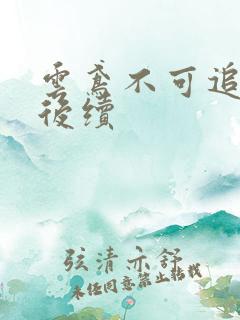 雲鸢不可追
後續
弦清亦舒
未经同意禁止转载